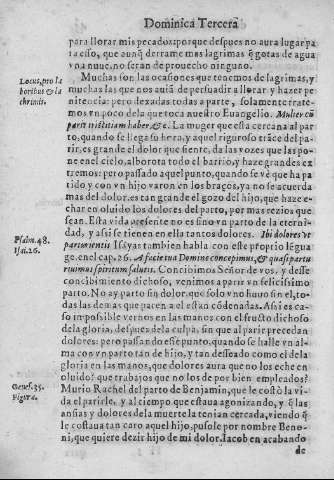 Dominica Tercera
para llorar mis pecados: porque despues no aura lugar pa
ra esso, que aunq̃ derrame mas lagrimas q̃ gotas de agua
vna nuue, no seran de prouecho ninguno.
Muchas son las ocasiones que tenemos de lagrimas, y
muchas las que nos auiã de persuadir a llorar, y hazer pe-
nitencia: pero dexadas todas a parte, solamente trate-
mos vn poco de la que toca nuestro Euangelio. Mulier cũ
parit tristitiam habet, &c. La muger que esta cercana al par
to, quando se llegó su hora, y aquel riguroso trãce del pa-
rir, es grande el dolor que siente, da las vozes que las po-
ne en el cielo, alborota todo el barrio, y haze grandes ex
tremos: pero passado aquel punto, quando se vè que ha pa
rido y con vn hijo varon en los braços, ya no se acuerda
mas del dolor, es tan grande el gozo del hijo, que haze e-
char en oluido los dolores del parto, por mas rezios que
sean. Esta vida presente no es sino vn parto de la eterni-
dad, y assi se tienen en ella tantos dolores. Ibi dolores vt
parturientis Isayas tambien habla con este proprio lẽgua
ge, en el cap. 26. A facie tua Domine concepimus, & quasi partu
riuimus spiritum salutis. Concibimos Señor de vos, y desse
concibimiento dichoso, venimos a parir vn felicissimo
parto. No ay parto sin dolor, que solo vno huuo sin el, to-
das las demas que paren a el estan cõdenadas. Assi es ca-
so impossible vernos en las manos con el fructo dichoso
de la gloria, despues de la culpa, sin que al parir precedan
dolores: pero passando esse punto, quando se halle vn al-
ma con vn parto tan de hijo, y tan desseado como el de la
gloria en las manos, que dolores aura que no los eche en
oluido? que trabajos que no los de por bien empleados?
Murio Rachel del parto de Benjamin, que le costò la vi-
da el parirle, y al tiempo que estaua agonizando, y q̃ las
ansias y dolores de la muerte la tenian cercada, viendo q̃
le costaua tan caro aquel hijo, pusole por nombre Beno-
ni, que quiere dezir hijo de mi dolor. Iacob en acabando
de
Locus, pro la
boribus & la
chrimis.
Psalm. 48.
Isai. 26.
Genes. 35.
Figura.